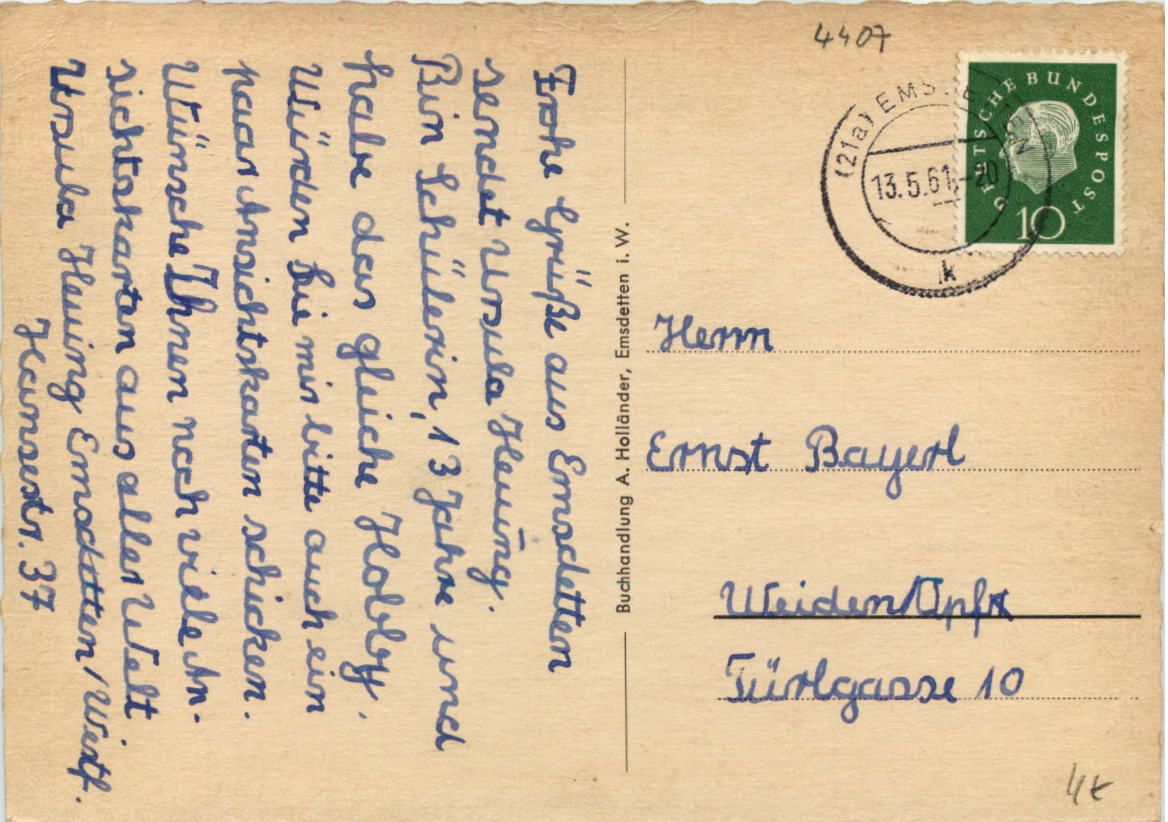 Frohe Grüße aus Emsdetten
sendet Ursula Heuing.
Bin Schülerin, 13 Jahre und
habe das gleiche Hobby.
Würden Sie mir bitte auch ein
paar Ansichtskarten schicken.
Wünsche Ihnen noch viele An-
sichtskarten aus aller Welt
Ursula Heuing Emsdetten/Westf.
Hansestr. 37
Buchhandlung A. Holländer, Emsdetten i. W.
4407
DEUTSCHE BUNDESPOST
10
(21a) EMSDETTEN
13.5.61.-20
k
Herrn
Ernst Bayerl
Weiden/Opf
Türlgasse 10